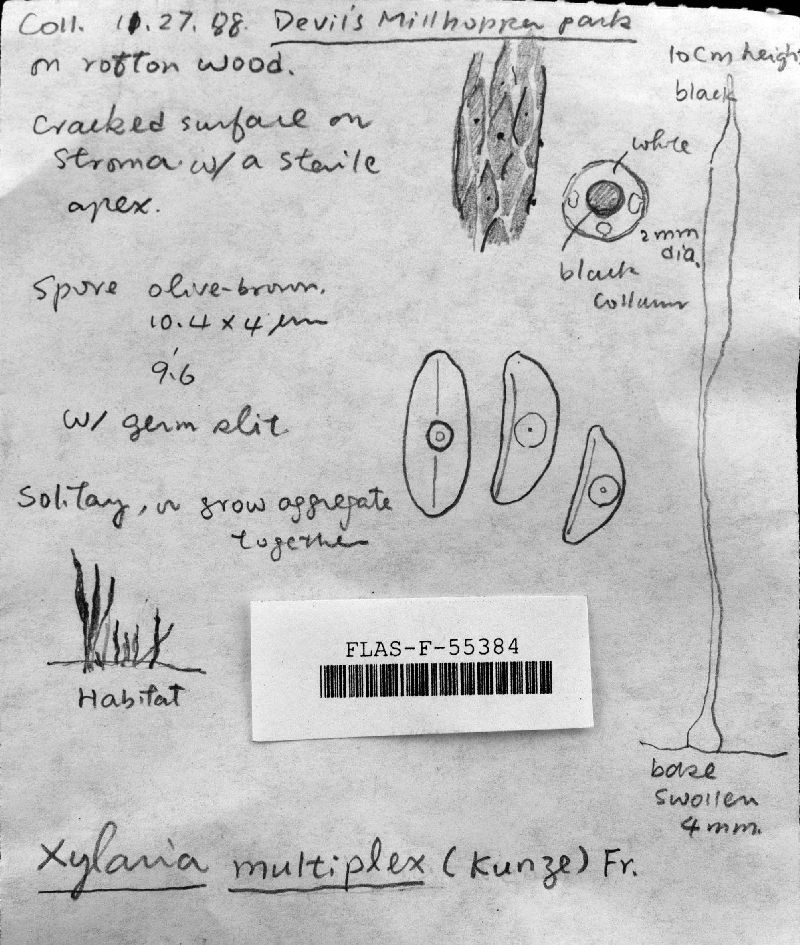 Coll. 11.27.88. Devil's Millhopper park
on rotton wood.
10 cm height
black
Cracked surface on
stroma w/ a sterile
apex.
white
2 mm
dia.
black
collumn
Spore olive-brown.
10.4 x 4 µm
9.6
w/ germ slit
Solitary, or grow aggregate
together
FLAS-F-55384
Habitat
base
swollen
4 mm.
Xylaria multiplex (Kunze) Fr.